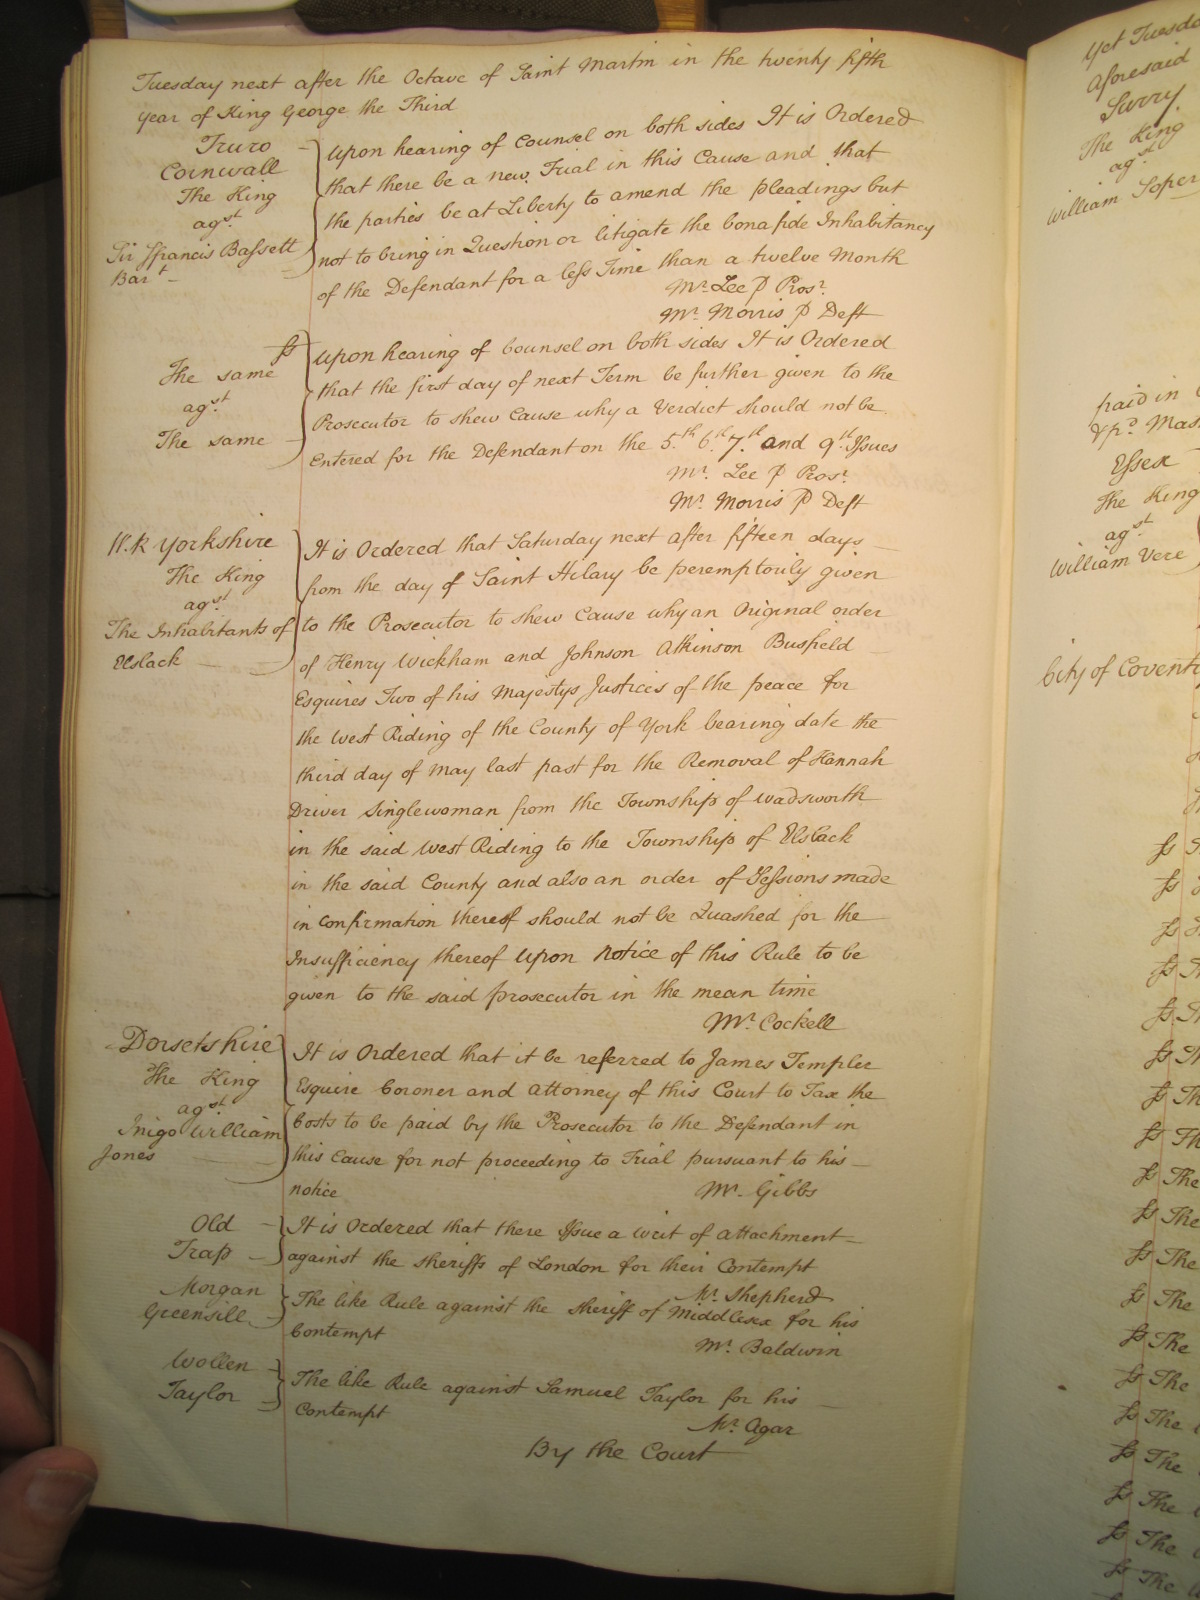 Tuesday next after the Octave of Saint Martin in the twenty fifth
year of King George the Third
Truro
Cornwall
The King
agst.
Sir Ffrancis Bassett
Bart
Upon hearing of Counsel on both sides It is Ordered
that there be a new Trial in this Cause and that
the parties be at Liberty to amend the pleadings but
not to bring in Question or litigate the bonafide Inhabitancy
of the Defendant for a less Time than a twelve Month
Mr. Lee p Prosr.
Mr. Morris p Deft
The same
agst.
The same
Upon hearing of Counsel on both sides It is Ordered
that the first day of next Term be further given to the
Prosecutor to shew Cause why a Verdict should not be
Entered for the Defendant on the 5th. 6th. 7th. and 9th. Issues
Mr. Lee p Prosr.
Mr. Morris p Deft
W.R Yorkshire
The King
agst.
The Inhabitants of
Elslack
It is Ordered that Saturday next after fifteen days
from the day of Saint Hilary be peremptorily given
to the Prosecutor to shew Cause why an Original order
of Henry Wickham and Johnson Atkinson Busfield
Esquires Two of his Majestys Justices of the peace for
the West Riding of the County of York bearing date the
third day of May last past for the Removal of Hannah
Driver Singlewoman from the Township of Wadsworth
in the said West Riding to the Township of Elslack
in the said County and also an order of Sessions made
in Confirmation thereof should not be Quashed for the
Insufficiency thereof Upon Notice of this Rule to be
given to the said prosecutor in the mean time
Mr. Cockell
Dorsetshire
The King
agst.
Inigo William
Jones
It is Ordered that it be referred to James Templer
Esquire Coroner and Attorney of this Court to Tax the
Costs to be paid by the Prosecutor to the Defendant in
this Cause for not proceeding to Trial pursuant to his
notice
Mr. Gibbs
Old
Trap
It is Ordered that there Issue a writ of Attachment
against the Sheriffs of London for their Contempt
Mr. Shepherd
Morgan
Greensill
The like Rule against the Sheriff of Middlesex for his
Contempt
Mr. Baldwin
Wollen
Taylor
The like Rule against Samuel Taylor for his
Contempt
Mr. Agar
By the Court
Yet Tuesda
aforesaid
Surry.
The King
agst.
William Soper
paid in
Essex
The King
agst.
William Vere
City of Coventr
The
The
The
The
The
The
The
The
The
The
The